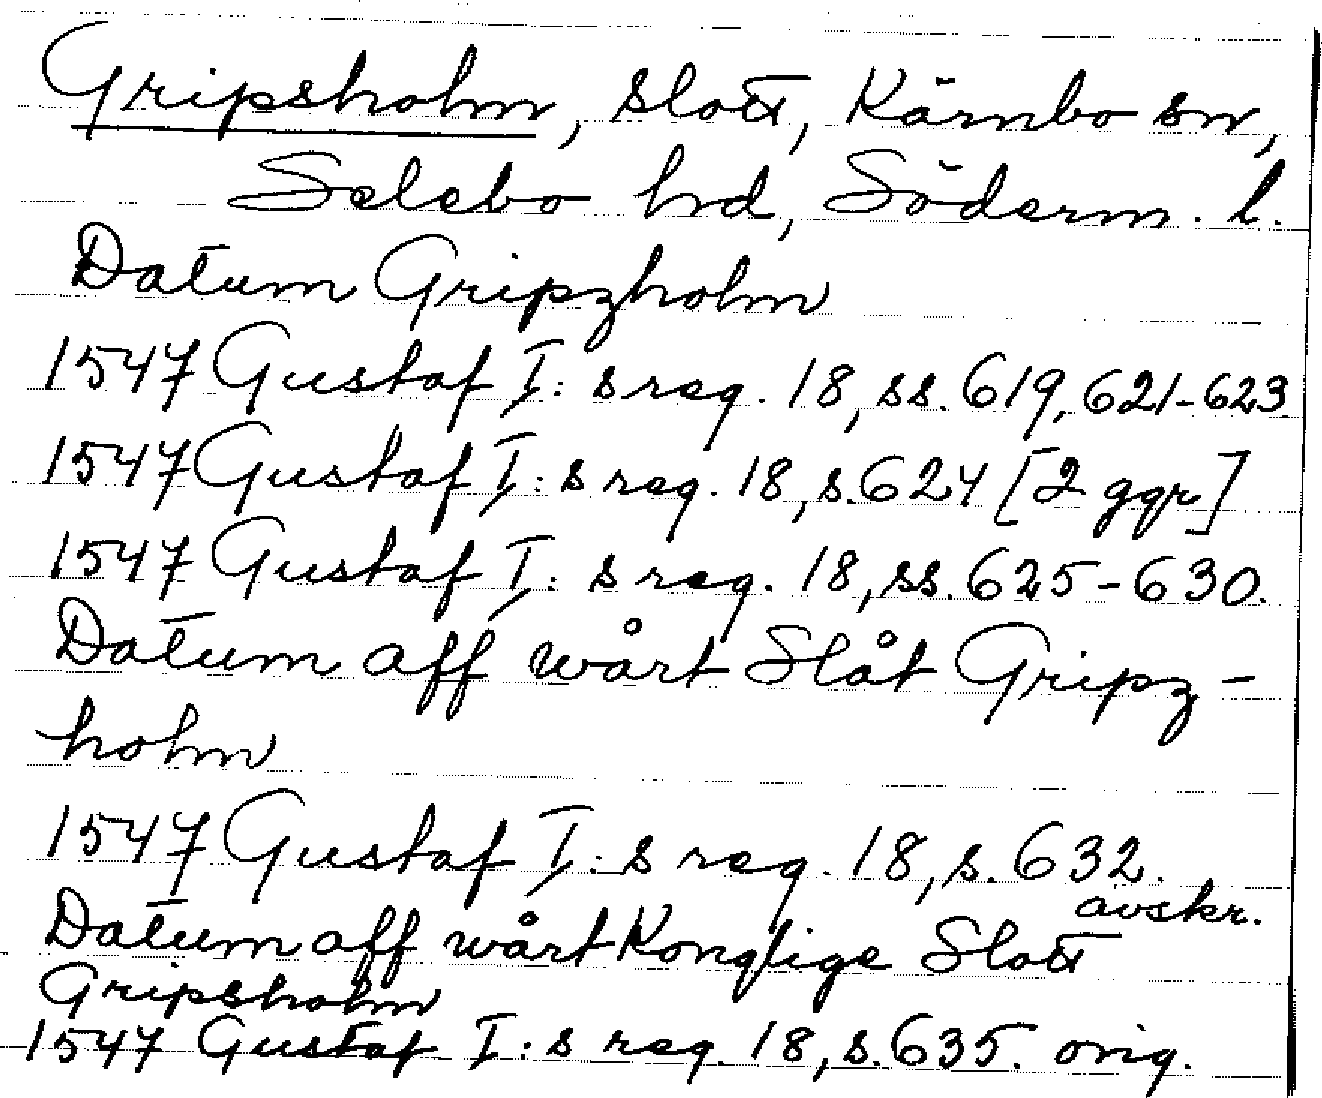 Gripsholm, slott, Kärnbo sn,
Selebo hd, Söderm. l.
Datum Gripzholm
1547 Gustaf I: s reg. 18, ss. 619, 621-623
1547 Gustaf I: s reg. 18, s. 624 [2 ggr]
1547 Gustaf I: s reg. 18, ss. 625-630.
Datum aff wårt Slåt Gripz-
holm
1547 Gustaf I: s reg. 18, s. 632.
avskr.
Datum aff wårt Konglige Slott
Gripsholm
1547 Gustaf I: s reg. 18, s. 635. orig.